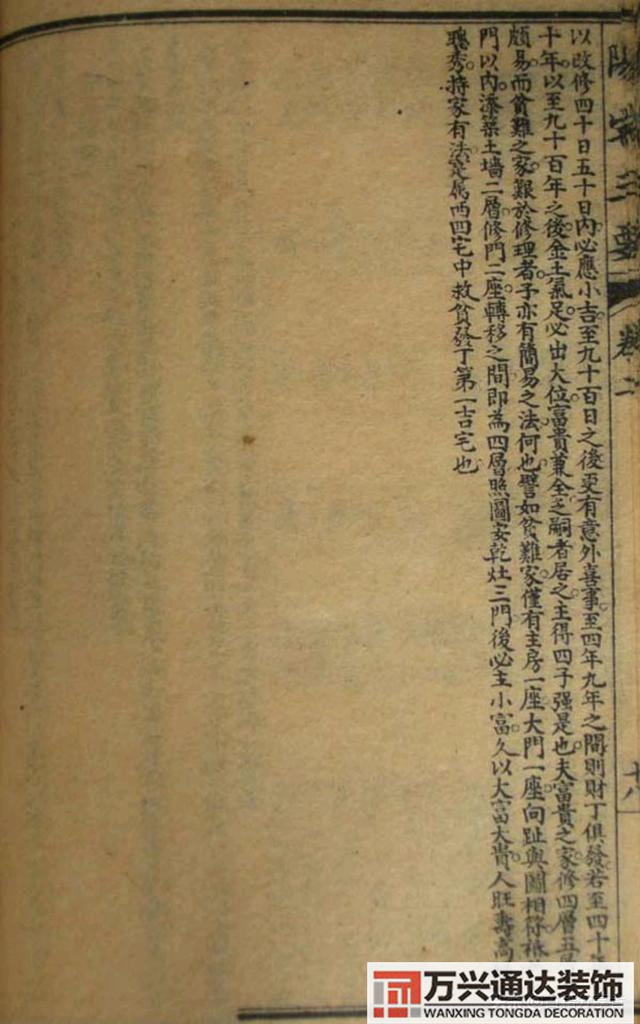 陽宅三要 卷二 十八
以改修四十日五十日內必應小吉至九十百日之後更有意外喜事至四年九年之間則財丁俱發若至四十
十年以至九十百年之後金土氣足必出大位富貴兼全乏嗣者居之主得四子强是也夫富貴之家修四層五
頗易而貧難之家艱於修理者予亦有簡易之法何也譬如貧難家僅有主房一座大門一座向趾與圖相符祇
門以內添築土墙二層修門二座轉移之間即為四層照圖安乾灶三門後必主小富久以大富大貴人旺壽高
聰秀持家有法定属西四宅中救貧發丁第一吉宅也
万兴通达装饰
WANXING TONGDA DECORATION